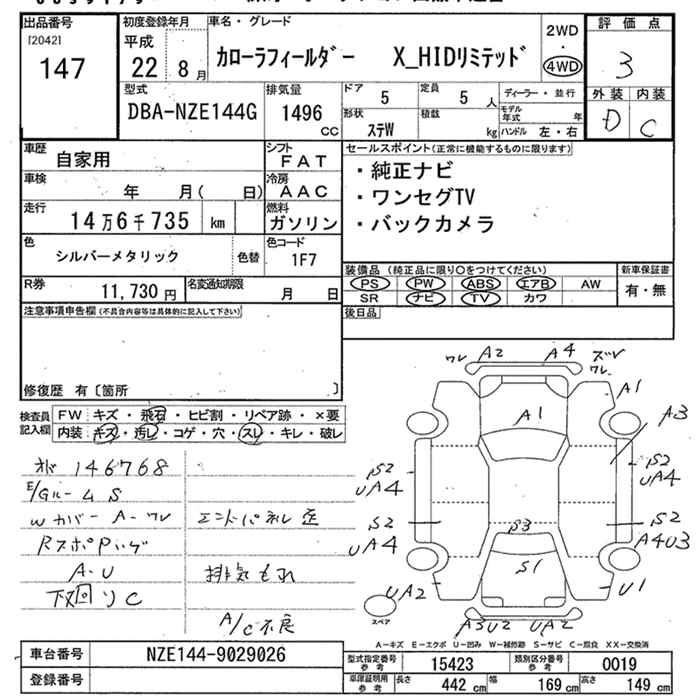 出品番号
[20421
147
初度登録年月
平成
22 8 月
車名・グレード
カローラフィールダー X_HIDリミテッド
2WD
・
4WD
評価点
3
外装 内装
D C
型式
DBA-NZE144G
排気量
1496
cc
ドア 5
定員 5 人
形状 ステW
積載 kg
ディーラー・並行
モデル年式 年
ハンドル 左・右
車歴
自家用
シフト
FAT
車検
年 月( 日)
冷房
AAC
走行
14万6千735 km
燃料
ガソリン
色
シルバーメタリック
色替
色コード
1F7
R券
11,730 円
名変通知期限
月 日
セールスポイント(正常に機能するものに限ります)
・純正ナビ
・ワンセグTV
・バックカメラ
装備品 (純正品に限り○をつけてください)
PS PW ABS エアB AW
SR ナビ TV カワ
新車保証書
有・無
後日品
注意事項申告欄(不具合内容等は具体的に記入して下さい)
修復歴 有〔箇所 〕
検査員
記入欄
FW キズ・飛石・ヒビ割・リペア跡・×要
内装 キズ・汚レ・コゲ・穴・スレ・キレ・破レ
146768
E/Gルーム S
Wカバー A-ワレ
エンドパネル 歪
A-U
排気もれ
下回り C
A/C不良
ワレ A2 A4 ズレ
ワレ
A1
A1
A3
S2
UA4
S2
UA4
S2
UA4
S2
A4U3
S3
S1
UA2
U1
A3U2 UA2
スペア
A―キズ E―エクボ U―凹み W―補修跡 S―サビ C―腐食 XX―交換済
車台番号
NZE144-9029026
登録番号
型式指定番号
参考
15423
類別区分番号
参考
0019
車庫証明用
参考
長さ 442 cm
幅 169 cm
高さ 149 cm